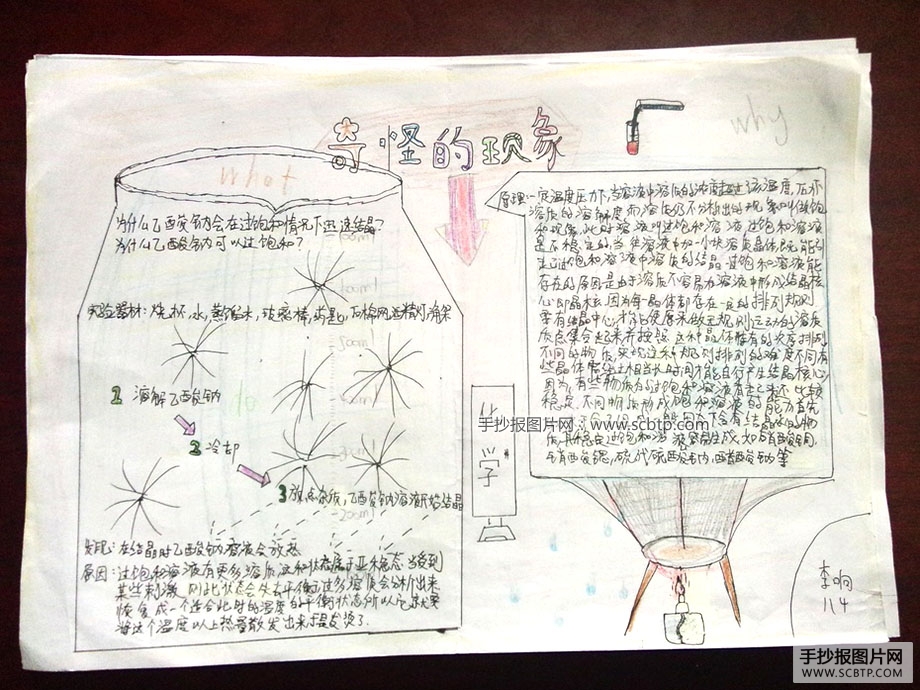 奇怪的现象
why
what
为什么乙酸钠会在过饱和情况下迅速结晶?
为什么乙酸钠可以过饱和?
实验器材:烧杯,水,蒸馏水,玻璃棒,药匙,石棉网,酒精灯,角架
500ml
1 溶解乙酸钠
do
2 冷却
3 放点杂质,乙酸钠溶液开始结晶
200ml
发现:在结晶时乙酸钠溶液会放热
原因:过饱和溶液有更多溶质,这种状态属于亚稳态,当受到
某些刺激,则此状态会失去平衡,过多溶质会分析出来
恢复成一个适合此时的温度的平衡状态所以它就要
将这个温度以上热量散发出来
原理:一定温度压力下,当溶液中溶质的浓度超过该温度,压力下
溶质的溶解度,而溶质仍不分析出的现象叫做过饱
和现象,此时溶液叫过饱和溶液,过饱和溶液
是不稳定的,当在溶液中加一小块溶质晶体,既能引
起过饱和溶液中溶质的结晶,过饱和溶液能
存在的原因是由于溶质不容易在溶液中形成结晶核
心即晶核,因为每一晶体都存在一定的排列规则
要有结晶中心,才能使原来做无规则运动的溶质
质点集合起来并按照这种晶体惟有的次序排列
不同的物质,实现这种规则排列的难度不同有
些晶体需经过相当长时间才能自行产生结晶核心
因为,有些物质的过饱和溶液看起来还比较
稳定,不同
硫代硫酸钠,
化学
李响
八4
手抄报图片网 www.scbtp.com
手抄报图片网
WWW.SCBTP.COM